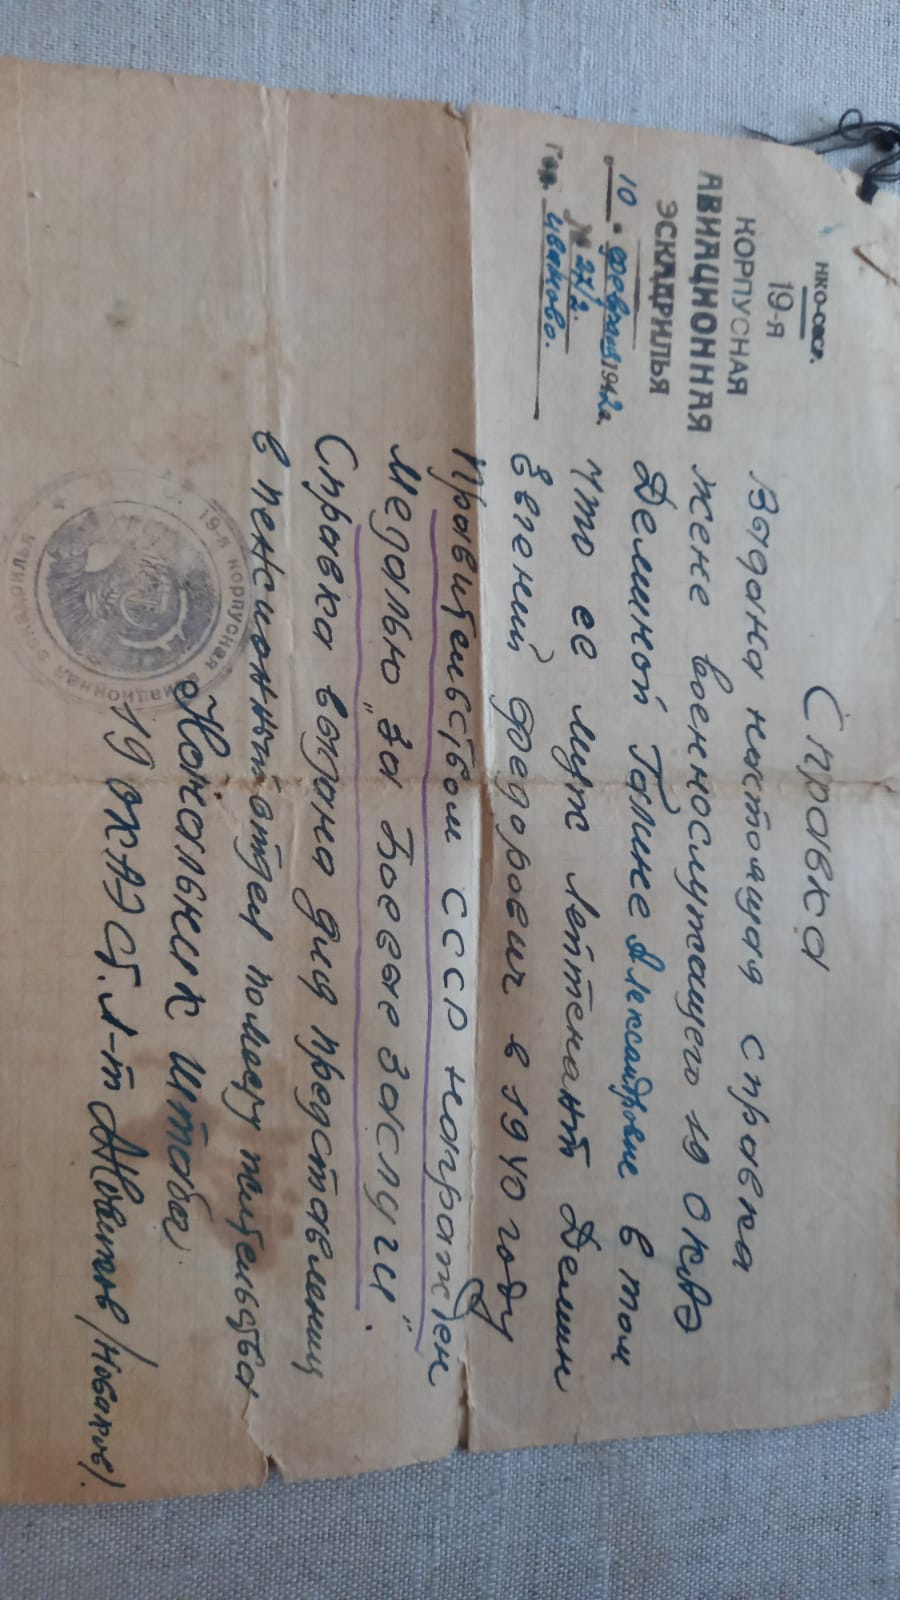 НКО-СССР.
19-я
КОРПУСНАЯ
АВИАЦИОННАЯ
ЭСКАДРИЛЬЯ
"10" февраля 1942 г.
№ 27/2.
Гор. Иваново.
Справка
Выдана настоящая справка
жене военнослужащего 19 окаэ
Деминой Галине Александровне в том
что ее муж лейтенант Демин
Евгений Федорович в 1940 году
правительством СССР награжден
медалью „за Боевые заслуги".
Справка выдана для представления
в пенсионный отдел по месту жительства
Начальник штаба
19 окАЭ ст. л-т /Новиков/.
19-я корпусная авиационная эскадрилья